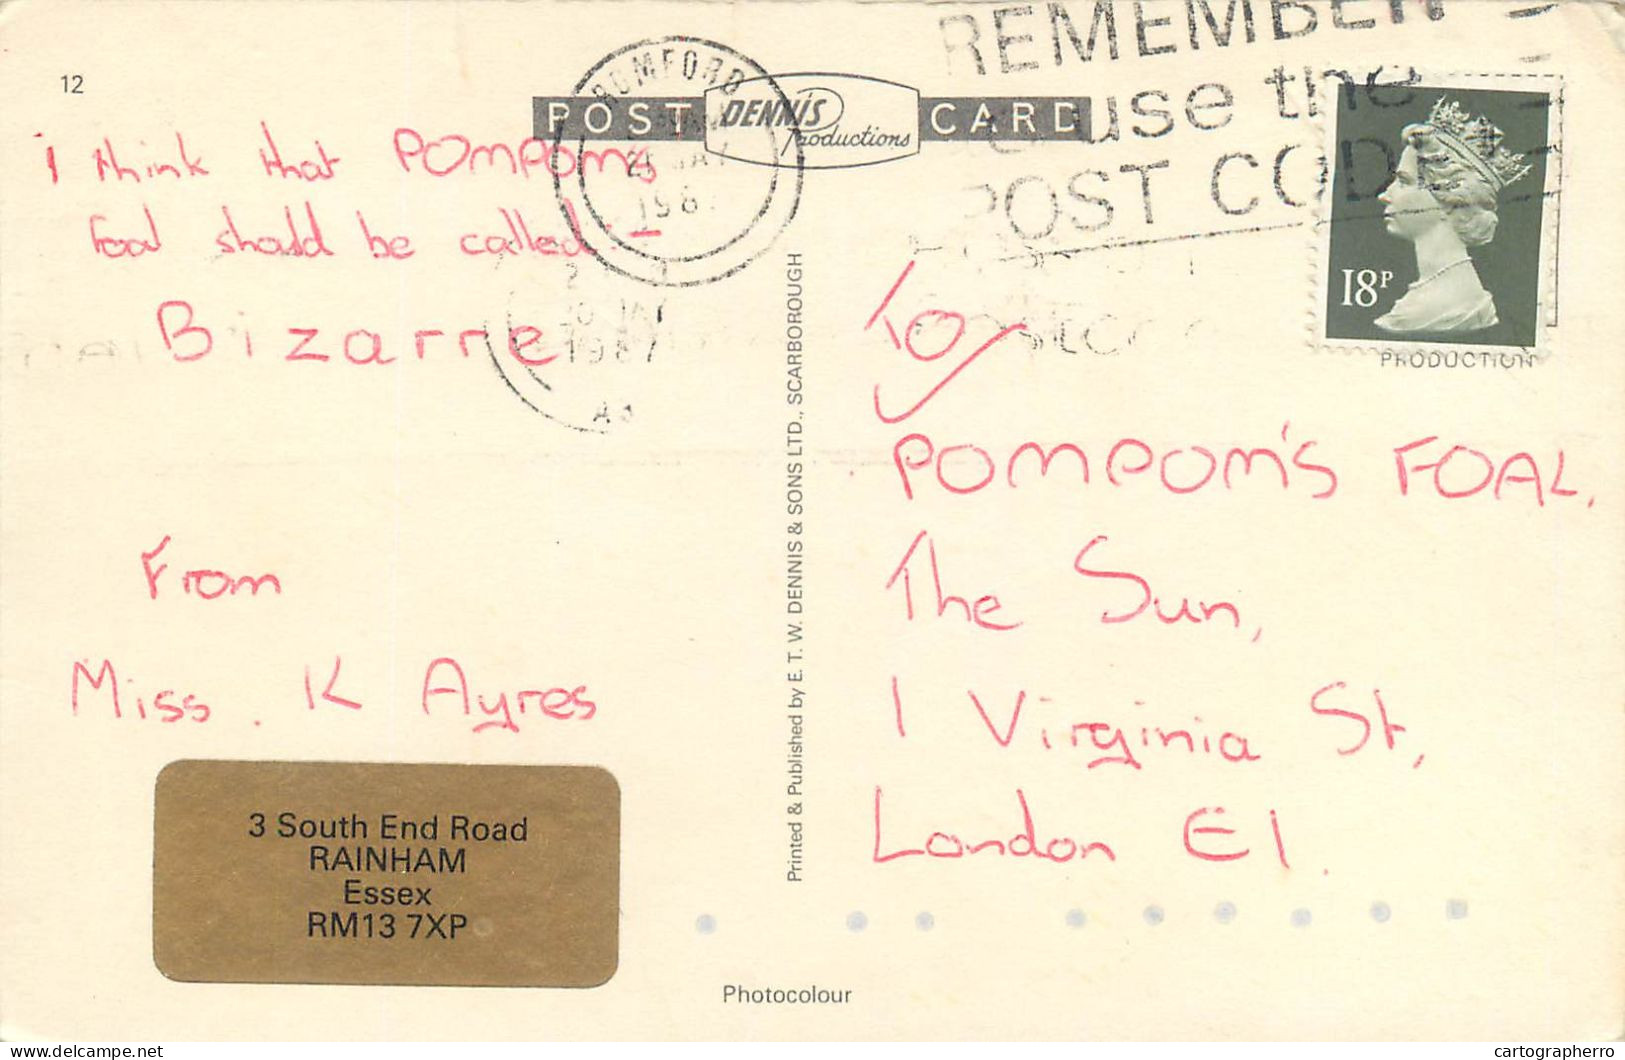 12
POST DENNIS Productions CARD
REMEMBER
use the
POST CODE
ROMFORD
MAY
198
1987
18P
PRODUCTION
i think that POMPOMs
foal should be called -
Bizarre
From
Miss. K Ayres
3 South End Road
RAINHAM
Essex
RM13 7XP
Printed & Published by E. T. W. DENNIS & SONS LTD., SCARBOROUGH
To
POMPOM'S FOAL,
The Sun,
1 Virginia St,
London E1.
Photocolour
delcampe.net
cartographerro